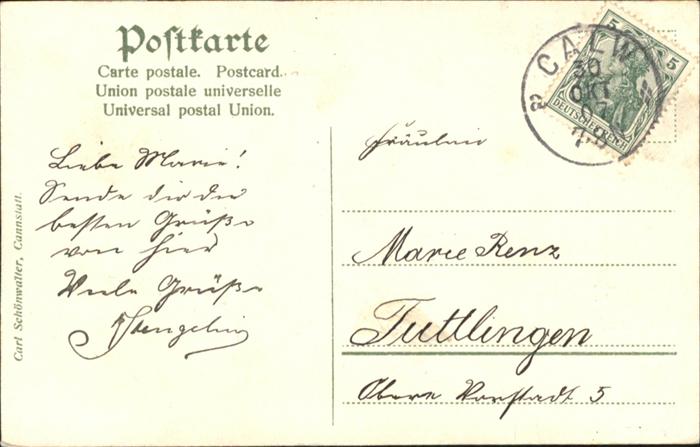 Postkarte
Carte postale. Postcard.
Union postale universelle
Universal postal Union.
Liebe Marie!
Sende dir die
besten Grüße
von hier
Viele Grüße
Carl Schönwalter, Cannstatt.
CALW
30
OKT
07
5 5
DEUTSCHES REICH
Fräulein
Marie Renz
Tuttlingen
Obere Vorstadt 5